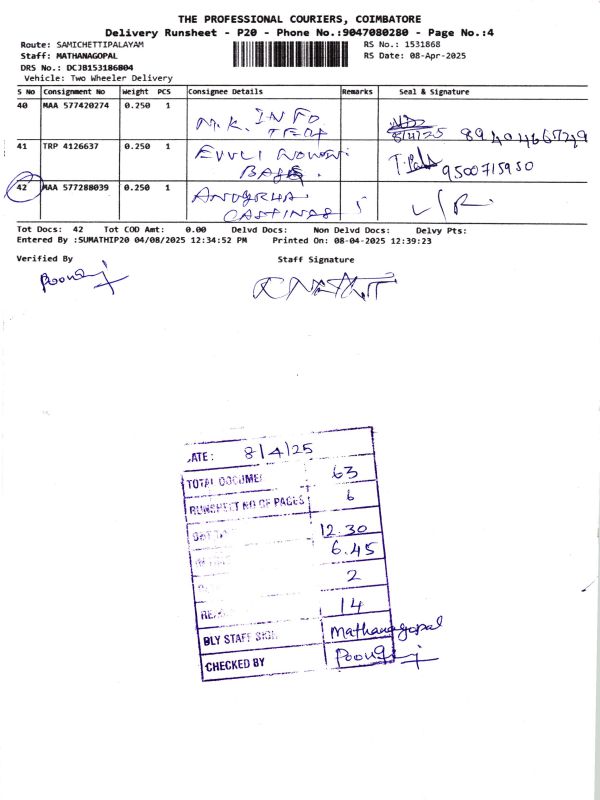 THE PROFESSIONAL COURIERS, COIMBATORE
Delivery Runsheet - P20 - Phone No.:9047080280 - Page No.:4
Route: SAMICHETTIPALAYAM
RS No.: 1531868
Staff: MATHANAGOPAL
RS Date: 08-Apr-2025
DRS No.: DCJB153186804
Vehicle: Two Wheeler Delivery
S No Consignment No Weight PCS Consignee Details Remarks Seal & Signature
40 MAA 577420274 0.250 1 M.K. INFO TECH
8/4/25
41 TRP 4126637 0.250 1
9500715950
42 MAA 577288039 0.250 1 CASTINGS
Tot Docs: 42 Tot COD Amt: 0.00 Delvd Docs: Non Delvd Docs: Delvy Pts:
Entered By :SUMATHIP20 04/08/2025 12:34:52 PM Printed On: 08-04-2025 12:39:23
Verified By Staff Signature
ATE: 8/4/25
TOTAL DOCUME 63
RUNSHEET NO OF PAGES 6
12.30
6.45
2
14
DLY STAFF SIGN Mathanagopal
CHECKED BY